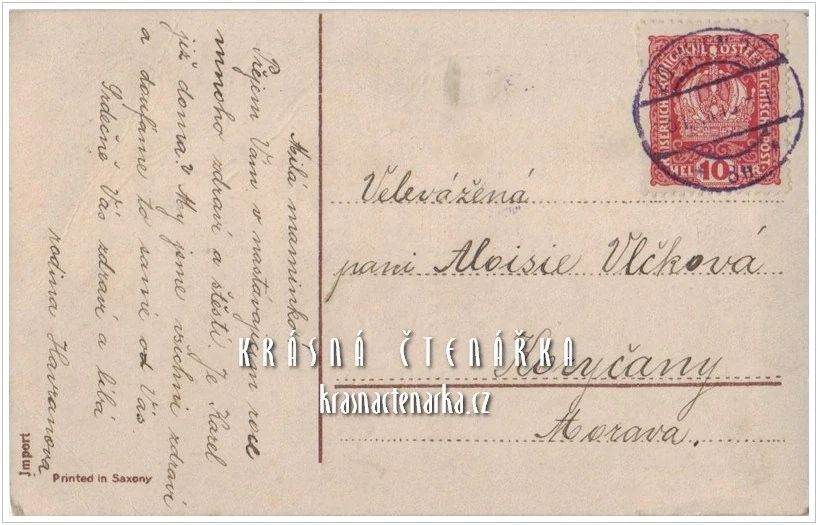 Milá maminko!
Přejem Vam v nastávajícím roce
mnoho zdraví a štěstí. Je Karel
již doma? My jsme všichni zdraví
a doufáme to samé od Vás
Srdečně Vás zdraví a líbá
rodina Havranova
Velevážená
paní Aloisie Vlčková
Koryčany
Morava.
KAISERLICHE KÖNIGLICHE ÖSTERREICHISCHE POST
HELLER 10
KRÁSNÁ ČTENÁŘKA
krasnactenarka.cz
Import
Printed in Saxony